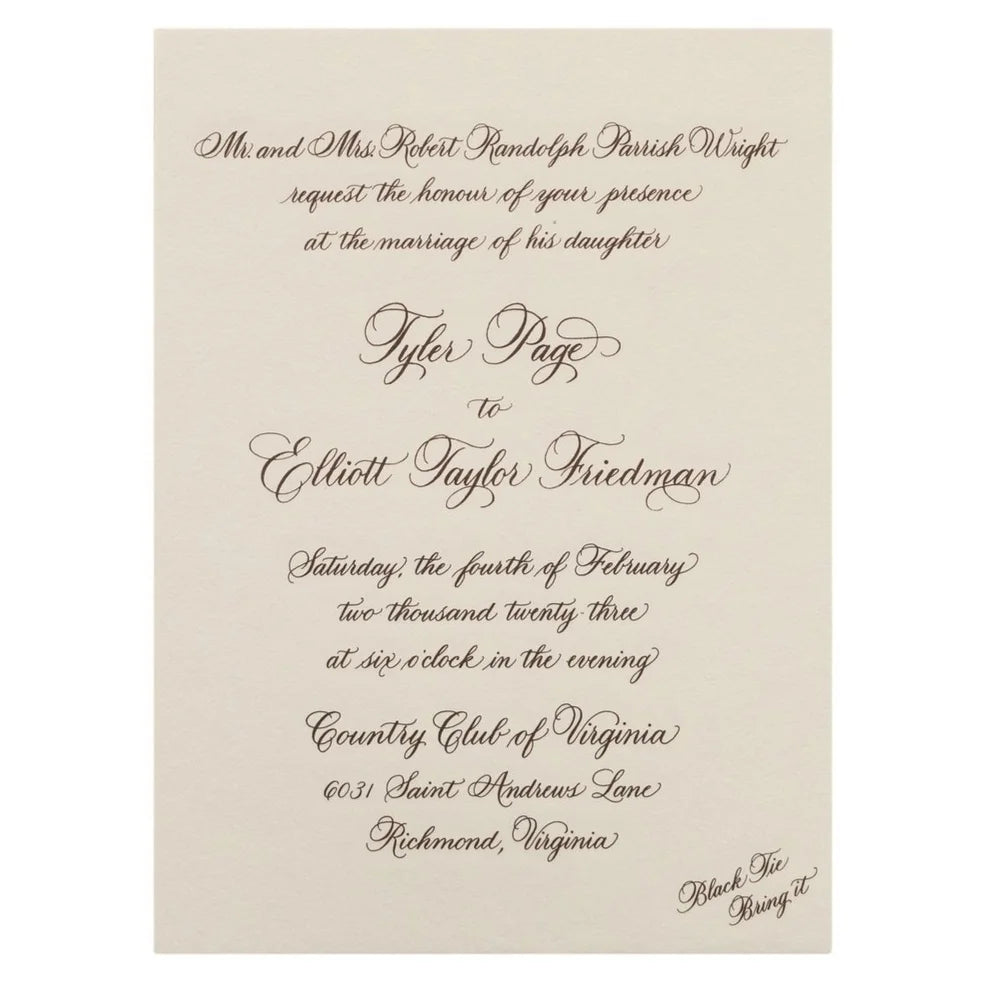 Mr. and Mrs. Robert Randolph Parrish Wright
request the honour of your presence
at the marriage of his daughter
Tyler Page
to
Elliott Taylor Friedman
Saturday, the fourth of February
two thousand twenty-three
at six o'clock in the evening
Country Club of Virginia
6031 Saint Andrews Lane
Richmond, Virginia
Black Tie
Bring it